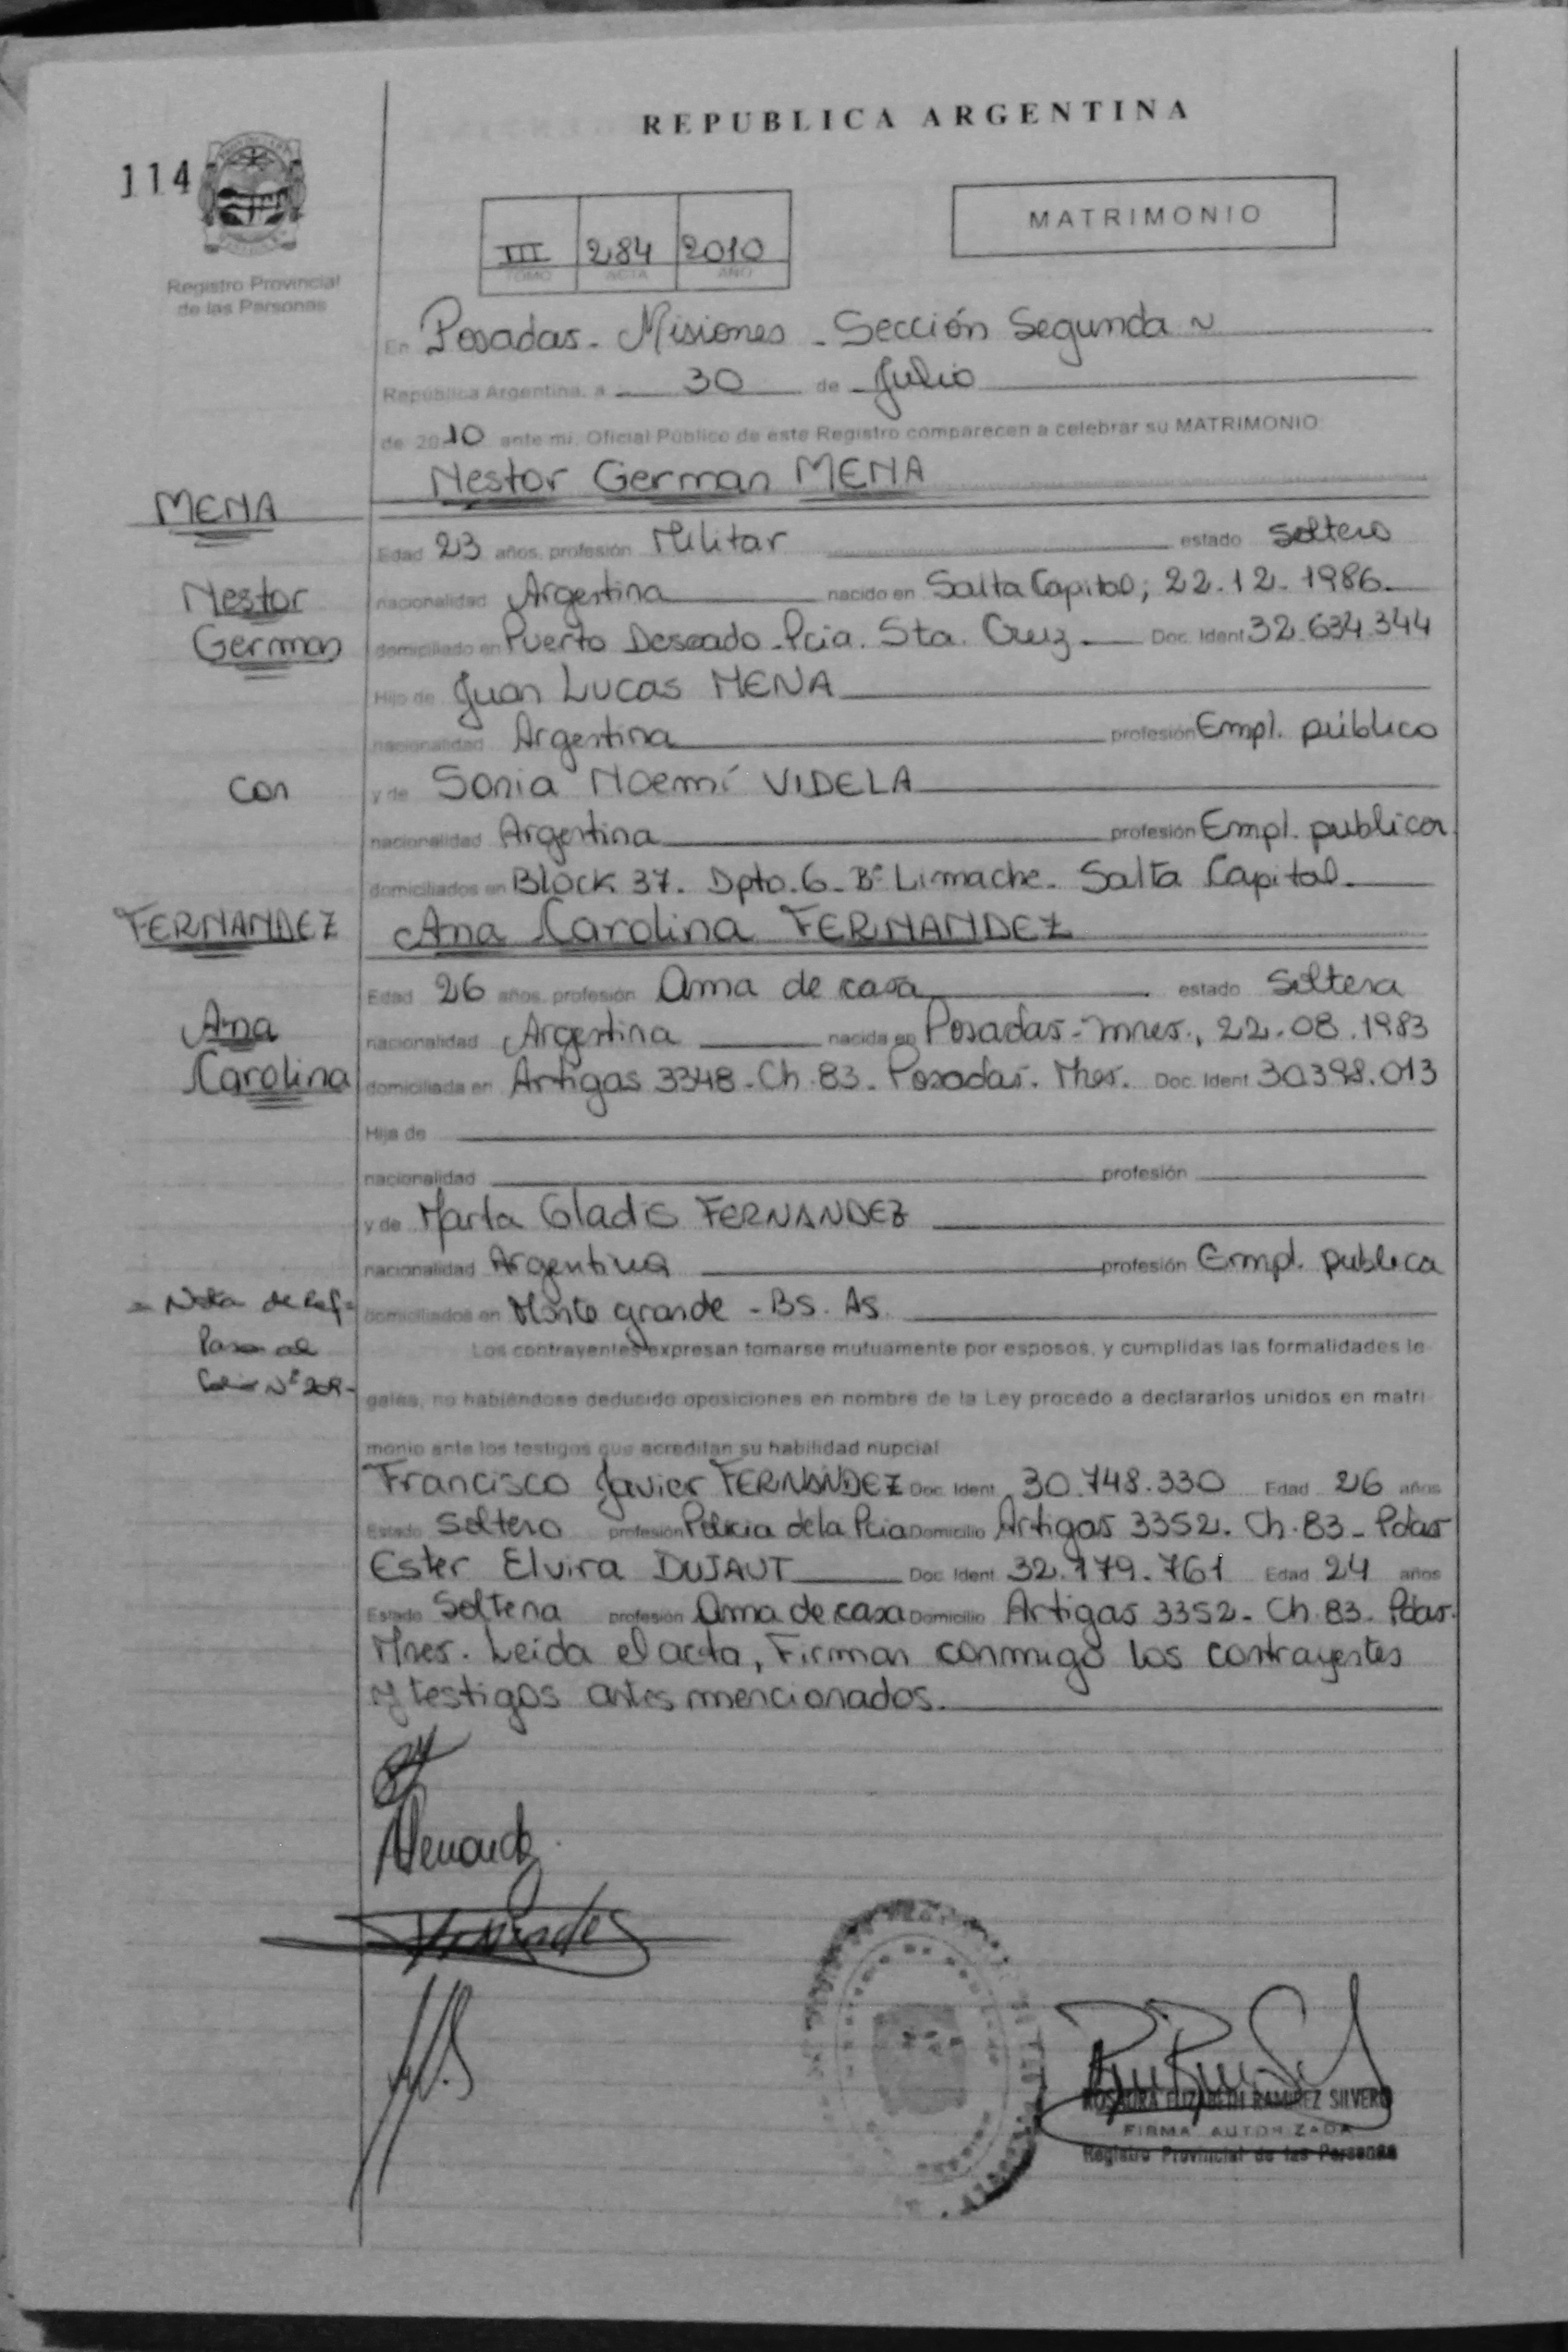 REPUBLICA ARGENTINA
114
Registro Provincial
de las Personas
III 284 2010
TOMO ACTA AÑO
MATRIMONIO
En Posadas - Misiones - Sección Segunda ~
República Argentina, a 30 de Julio
de 2010 ante mi, Oficial Público de este Registro comparecen a celebrar su MATRIMONIO:
Nestor German MENA
MENA
Edad 23 años, profesión Militar estado Soltero
Nestor
nacionalidad Argentina nacido en Salta Capital; 22-12-1986.
German
domiciliado en Puerto Deseado - Pcia. Sta. Cruz. Doc. Ident 32.634.344
Hijo de Juan Lucas MENA
nacionalidad Argentina profesión Empl. público
con
y de Sonia Noemí VIDELA
nacionalidad Argentina profesión Empl. publica
domiciliados en Block 37. Dpto. 6 - Bº Limache - Salta Capital.
FERNANDEZ
Ana Carolina FERNANDEZ
Edad 26 años, profesión Ama de casa estado Soltera
Ana
nacionalidad Argentina nacida en Posadas - Mnes., 22-08-1983
Carolina
domiciliada en Artigas 3348 - Ch. 83 - Posadas. Mnes. Doc. Ident 30.398.013
Hija de
nacionalidad profesión
y de Marta Gladis FERNANDEZ
nacionalidad Argentina profesión Empl. publica
= Nota de Ref =
domiciliados en Monte grande - Bs. As.
Pasa al
Los contrayentes expresan tomarse mutuamente por esposos, y cumplidas las formalidades le-
Nº
gales, no habiéndose deducido oposiciones en nombre de la Ley procedo a declararlos unidos en matri-
monio ante los testigos que acreditan su habilidad nupcial
Francisco Javier FERNANDEZ Doc. Ident. 30.748.330 Edad 26 años
Estado Soltero profesión Policia de la Pcia Domicilio Artigas 3352. Ch. 83 - Pdas
Ester Elvira DUJAUT Doc. Ident. 32.179.761 Edad 24 años
Estado Soltera profesión Ama de casa Domicilio Artigas 3352 - Ch. 83 - Pdas.
Mnes. Leida el acta, Firman conmigo los contrayentes
y testigos antes mencionados.
ROSAURA ELIZABETH RAMIREZ SILVERO
FIRMA AUTORIZADA
Registro Provincial de las Personas